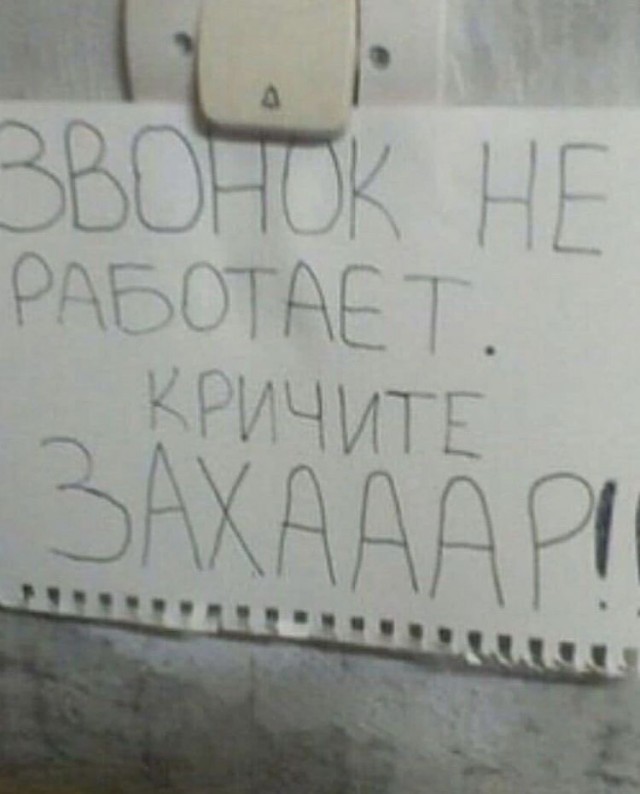 ЗВОНОК НЕ
РАБОТАЕТ.
КРИЧИТЕ
ЗАХАААР!!